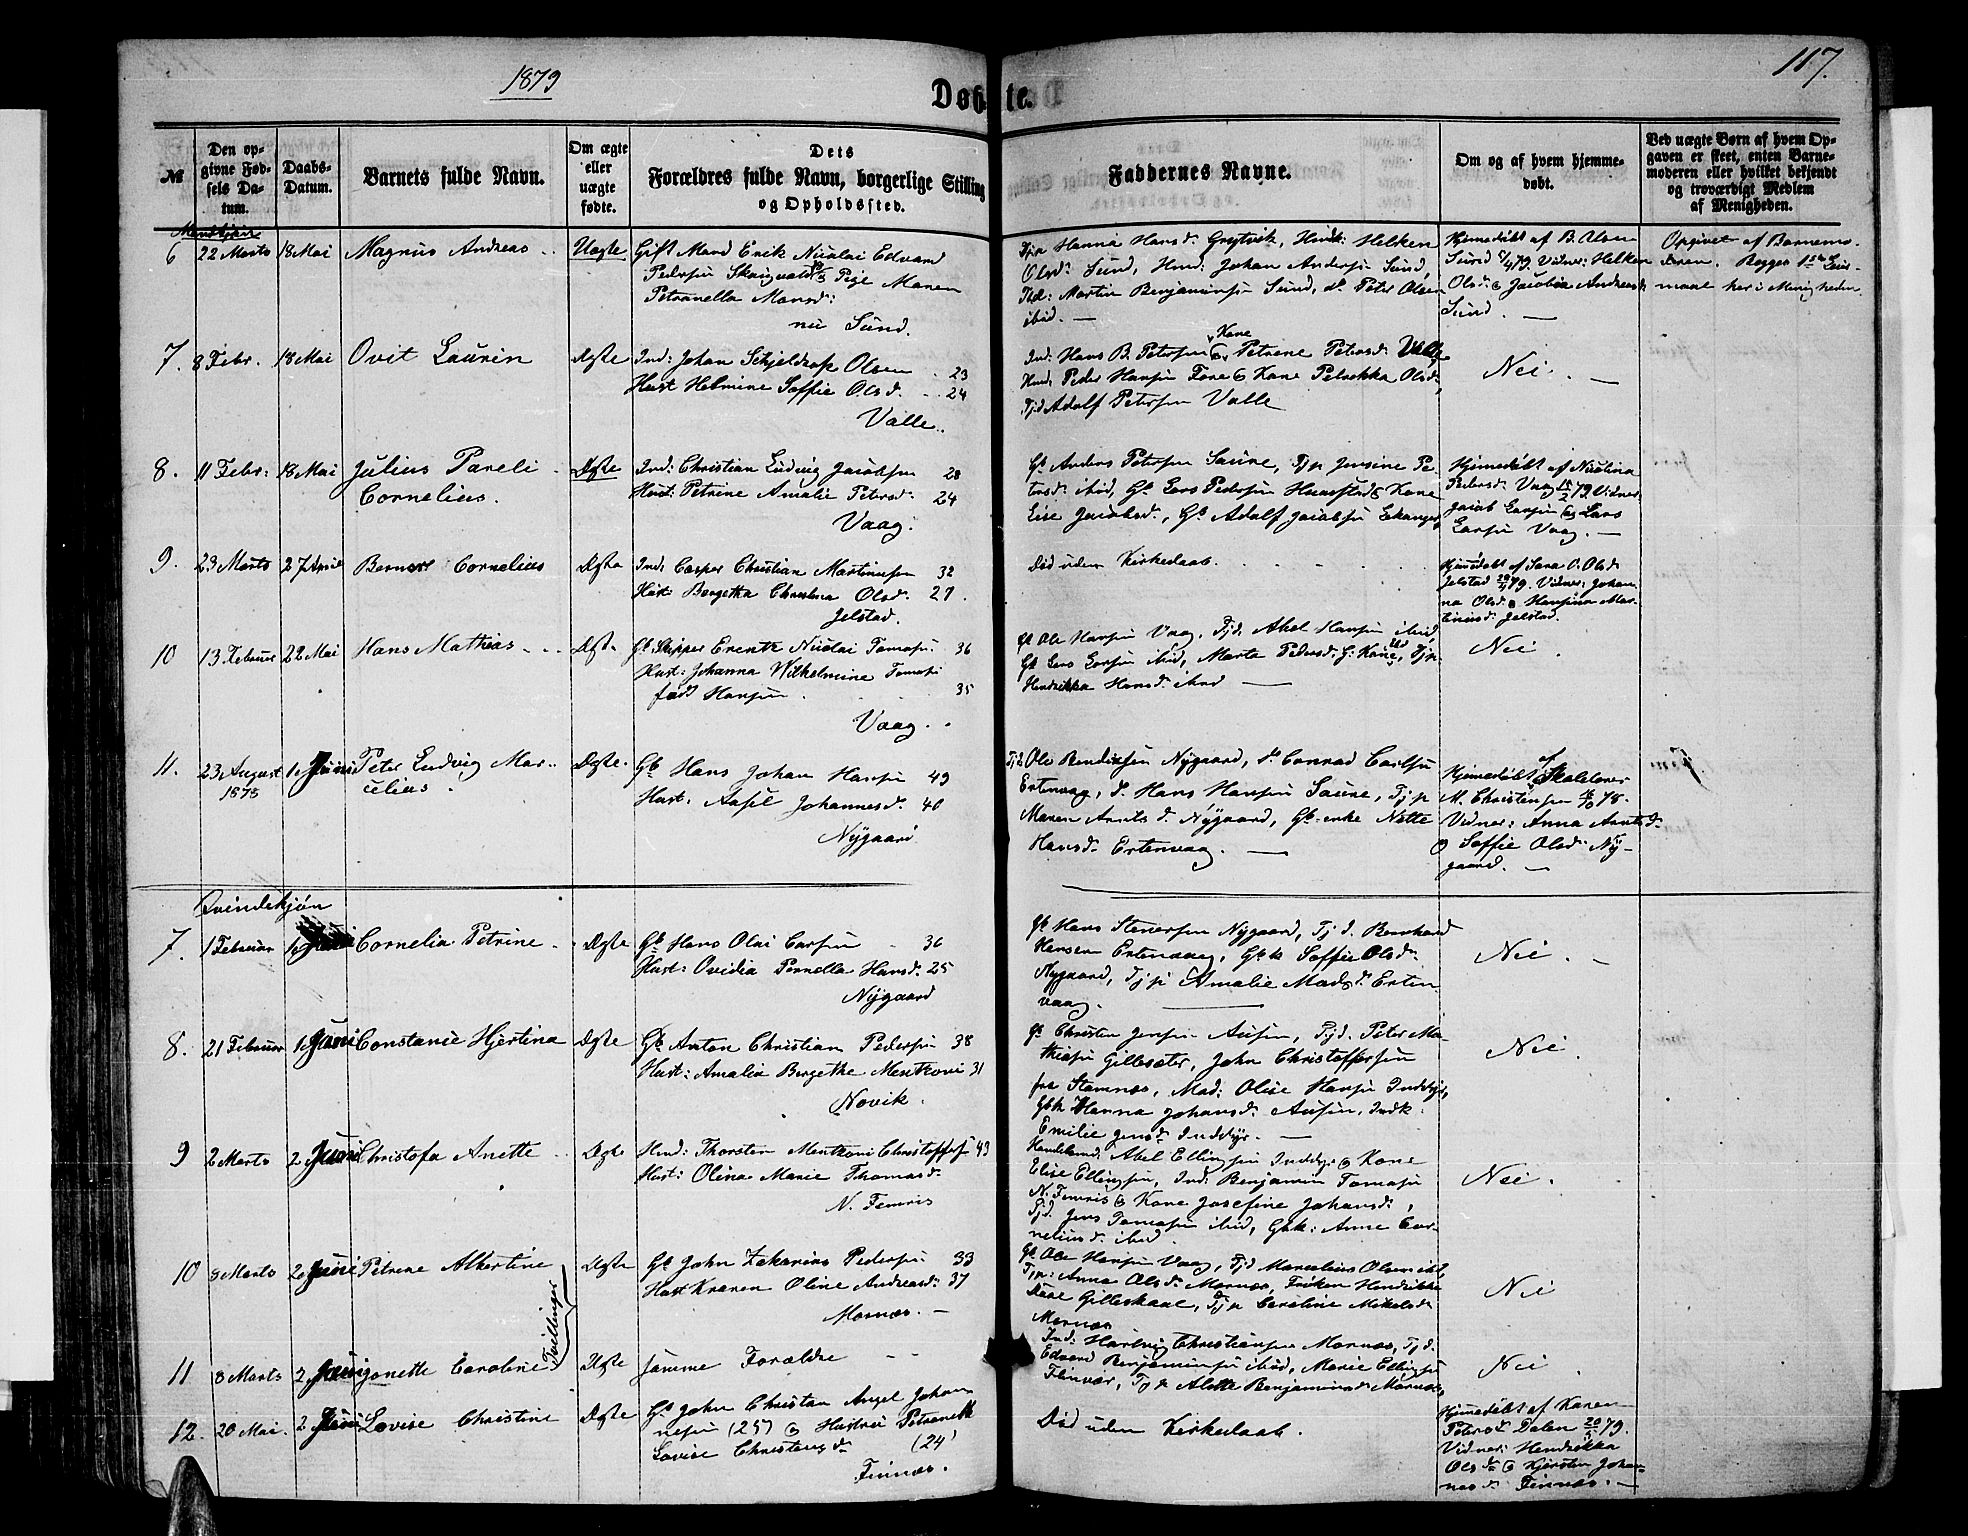 1879
Døbte.
117.
№
Den op-
givne Fød-
sels Da-
tum.
Daabs-
Datum.
Barnets fulde Navn.
Om ægte
eller
uægte
fødte.
Dets
Forældres fulde Navn, borgerlige Stilling
og Opholdssted.
Faddernes Navne.
Om og af hvem hjemme-
døbt.
Ved uægte Børn af hvem Op-
gaven er skeet, enten Barne-
moderen eller hvilket bekjendt
og troværdigt Medlem
af Menigheden.
Mandkjøn
6 22 Marts 18 Mai Magnus Andreas Uægte
Gift Mand Erik Nicolai Edvard
Pedersen Pige Maren
Petranella Monsd:
nu Sund.
Tjp Hanna Hansd. Grytvik, Helken
Olsd: Sund, Johan Andersen Sund,
Martin Benjaminsen Sund, Peter Olsen
ibid.
Hjemmedøbt af B. Olsen
Sund Vidner: Helken
Olsd: & Jacobia Andreasd:
Sund.
Opgivet af Barnemo-
deren. Begges 1ste Leier-
maal her i Menigheden.
7. 8 Febr. 18 Mai Ovit Laurin Ægte
Ind: Johan Schjeldrop Olsen 23
Hust Helmine Soffie Olsd. 24
Valle.
Ind: Hans B. Petersen & Kone Petrine Petersd. Valle
Peder Hansen Fore & Kone Petrikka Olsd:,
Tjd Adolf Petersen Valle
Nei.
8. 11 Febr: 18 Mai Julius Pareli
Cornelius. Ægte
Ind: Christian Ludvig Jacobsen 28
Hust: Petrine Amalie Petersd. 24
Vaag.
Gb Anders Petersen Saure, Tjp Jensine Pe-
tersd. ibid, Gb Lars Pedersen & Kone
Lise Jacobsd., Gb Adolf Jacobsen
Hjemmedøbt af Nicolina
Pedersd. Vaag 15/2 79. Vidner
Jacob Larsen & Lars
Larsen Vaag.
9. 23 Marts 27 April Cornelius Ægte
Ind: Casper Christian Martinusen 32
Hust: Bergetha Christina Olsd. 27.
Jelstad.
Død uden Kirkedaab.
Hjemmedøbt af Sara O. Olsd:
Jelstad 79. Vidner: Johan-
na Olsd. & Hansina Mar-
tinusd. Jelstad.
10 13 Februar 22 Mai Hans Mathias Ægte
Gb Skipper Erentz Nicolai Tomasen 36
Hust: Johanna Wilhelmine Tomasen
født Hansen 35
Vaag.
Gb Ole Hansen Vaag, Tjd. Abel Hansen ibid,
Gb Lars Larsen ibid, Marta Pedersd. G: Kone ibid, Tjp.
Hendrikka Hansd. ibid
Nei.
11. 23 August
1878 1 Juni Peter Ludvig Mar-
celius. Ægte.
Gb Hans Johan Hansen 49
Hust: Aasel Johannesd. 40
Nygaard
Tjd Ole Bendiksen Nygaard, do Conrad Carlsen
Ertenvaag, do Hans Hansen Saure, Tjp
Maren Arntsd. Nygaard, Gb-enke Nette
Hansd. Ertenvaag.
Hjemmedøbt af Skolelærer
M. Christensen 78.
Vidner: Anna Arntsd.
& Soffie Olsd: Ny-
gaard.
Qvindekjøn
7. 1 Februar 1 Juni Cornelia Petrine Ægte
Gb Hans Olai Larsen 36
Hust: Ovidia Pernella Hansd. 25
Nygaard
Gb Hans Steversen Nygaard, Tjd. Bernhard
Hansen Ertenvaag, Gbk Soffie Olsd.
Nygaard, Tjp Amalie Madsd. Erten-
vaag.
Nei.
8. 21 Februar 1 Juni Constanse Hjertina Ægte
Gb Anton Christian Pedersen 38
Hust: Amalia Bergethe Mentzoni 31
Novik.
Gb Christen Jensen Ausen, Tjd. Peter Ma-
thiasen Gillesæter, John Christoffersen
fra Stamnæs, Mad: Olise Hansen Inddyr,
Gbk Hanna Johansd. Ausen, Indk.
Emilie Jensd. Inddyr.
Nei.
9 2 Marts 2 Juni Christofa Anette Ægte
Hmd: Thorsten Mentzoni Christoffers. 43
Hust: Olina Marie Thomasd.
N. Femris
Handelsmd: Abel Ellingsen Inddyr & Kone
Elise Ellingsen, Ind: Benjamin Tomasen
N. Femris & Kone Josefine Johansd.,
Tjd. Jens Tomasen ibid, Gbk: Anne Cor-
neliusd. ibid.
Nei.
10 8 Marts 2 Juni Petrine Albertine Ægte
Tvillinger
Gb John Zakarias Pedersen 33
Hust Karen Oline Andreasd. 37
Mornæs.
Gb Ole Hansen Vaag, Tjd Marcelius Olsen ibd,
Tjp: Anna Olsd. Mornæs, Frøken Hendrikke
Gilleskaal, Tjp Caroline Mikelsd.
Mornæs
Nei
11 8 Marts 2 Juni Jonette Caroline Ægte
samme Forældre
Ind: Hartvig Christiansen Mornæs, Tjd.
Edvard Benjaminsen ibid, Marie Ellingsen
Flenvær, Tjp Alette Benjaminsd. Mornæs,
Nei.
12. 20 Mai. 2 Juni Lovise Christine Ægte
Gb John Christian Angel Johan-
nesen (25) & Hustru Petranelle
Lovise Christensd. (24)
Finnæs.
Død uden Kirkedaab.
Hjemmedøbt af Karen
Petersd. Dalen 20/5 79.
Vidner: Hendrikka
Olsd. & Kjersten Johan-
nesd. Finnæs.